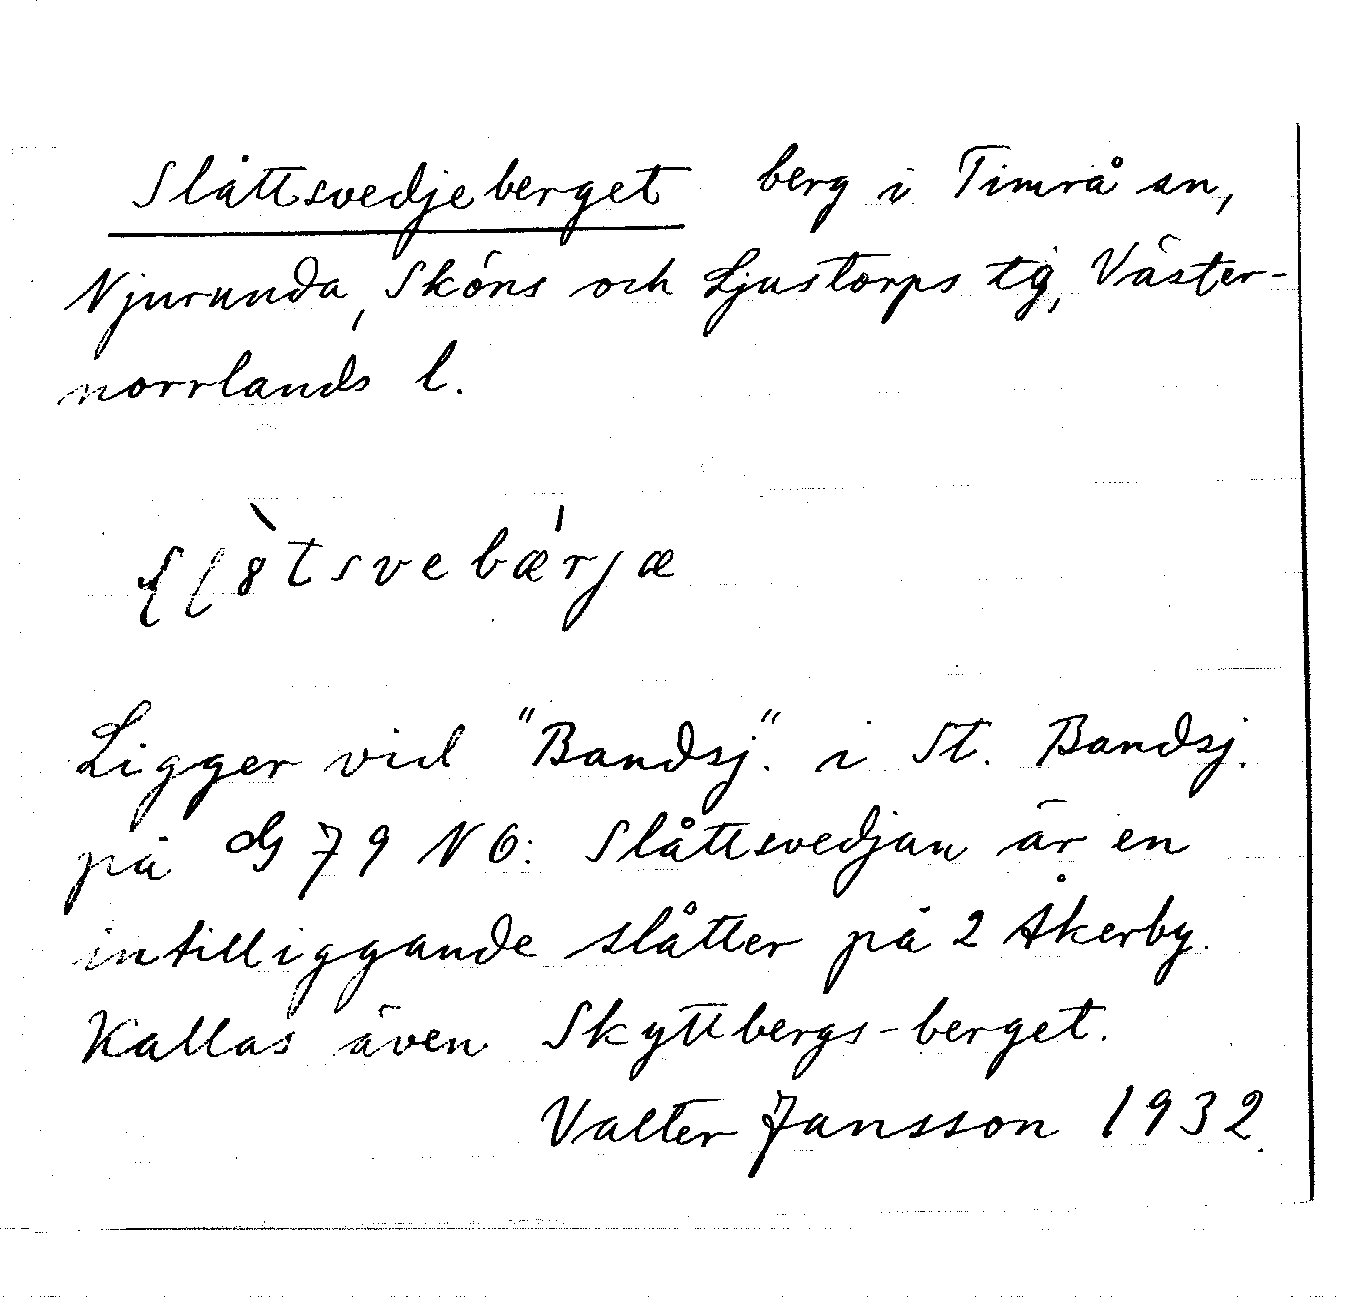 Slåttsvedjeberget berg i Timrå sn,
Njurunda, Sköns och Ljustorps tg, Väster-
norrlands l.
ʂɭ8̀tsvebǽrjæ
Ligger vid "Bandsj." i St. Bandsj.
på G 79 NO: Slåttsvedjan är en
intilliggande slåtter på 2 Åkerby.
Kallas även Skyttbergs-berget.
Valter Jansson 1932.